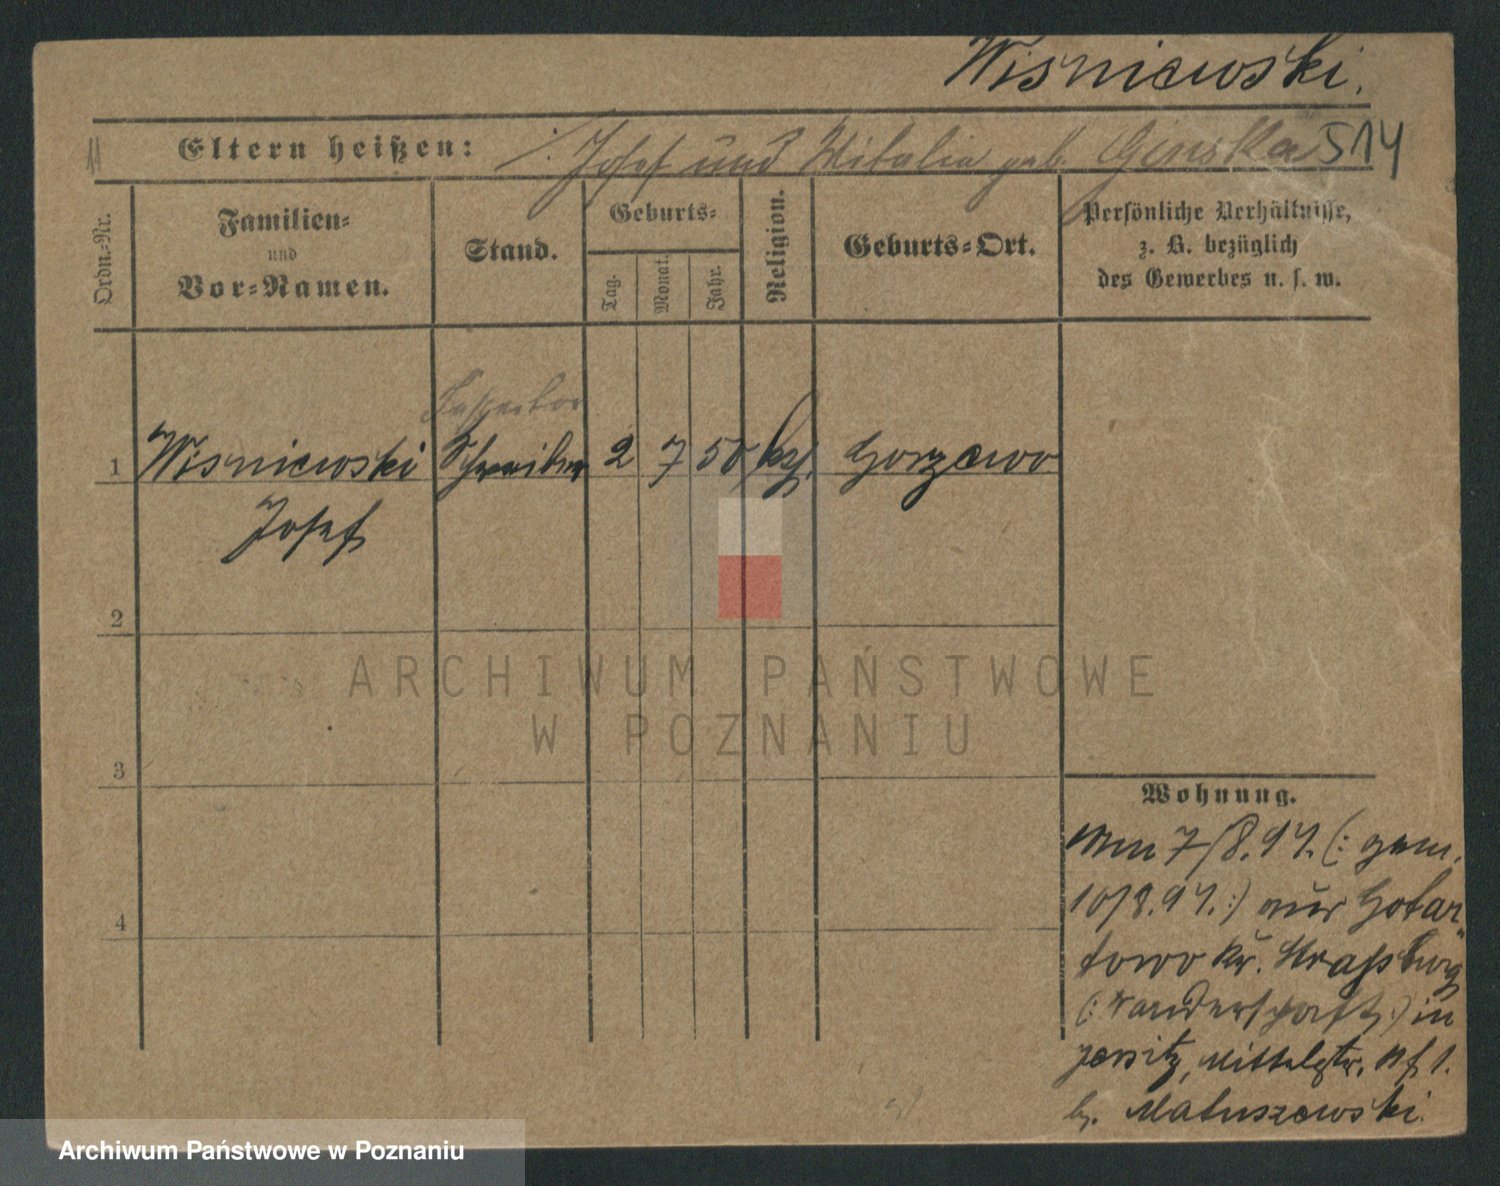 Wisniewski.
Eltern heißen: Josef und Witalia geb. Ginska 514
Ordn.-Nr.
Familien-
und
Vor-Namen.
Stand.
Geburts-
Tag.
Monat.
Jahr.
Religion.
Geburts-Ort.
Persönliche Verhältnisse,
z. B. bezüglich
des Gewerbes u. s. w.
Inspektor
1 Wisniewski Schreiber 2 7 50 kth. Gorzewo
Josef
2
3
4
Wohnung.
7/8.94. (: gem.
10/8.94. :) aus Gotar-
towo Kr. Straßburg
(: Wanderschaft :) in
Jersitz, Mittelstr. N° 1.
b. Matuszewski.
ARCHIWUM PAŃSTWOWE
W POZNANIU
Archiwum Państwowe w Poznaniu